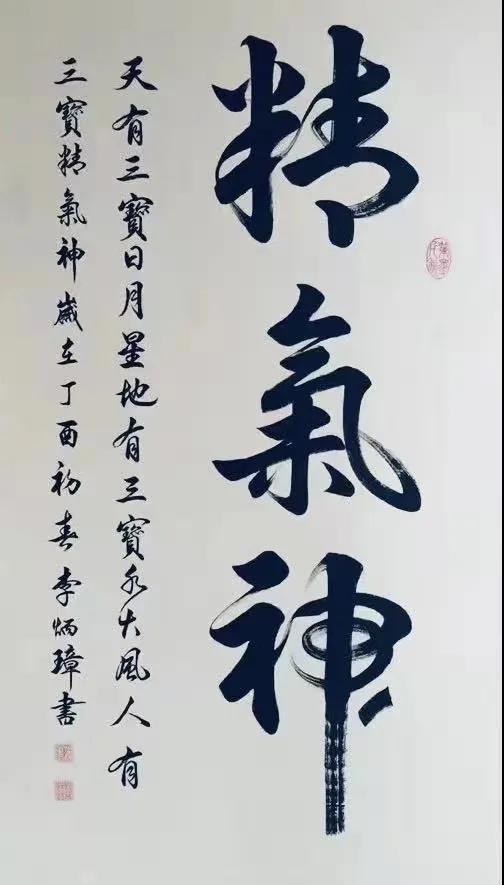 精氣神
天有三寶日月星地有三寶水火風人有
三寶精氣神歲在丁酉初春李炳璋書